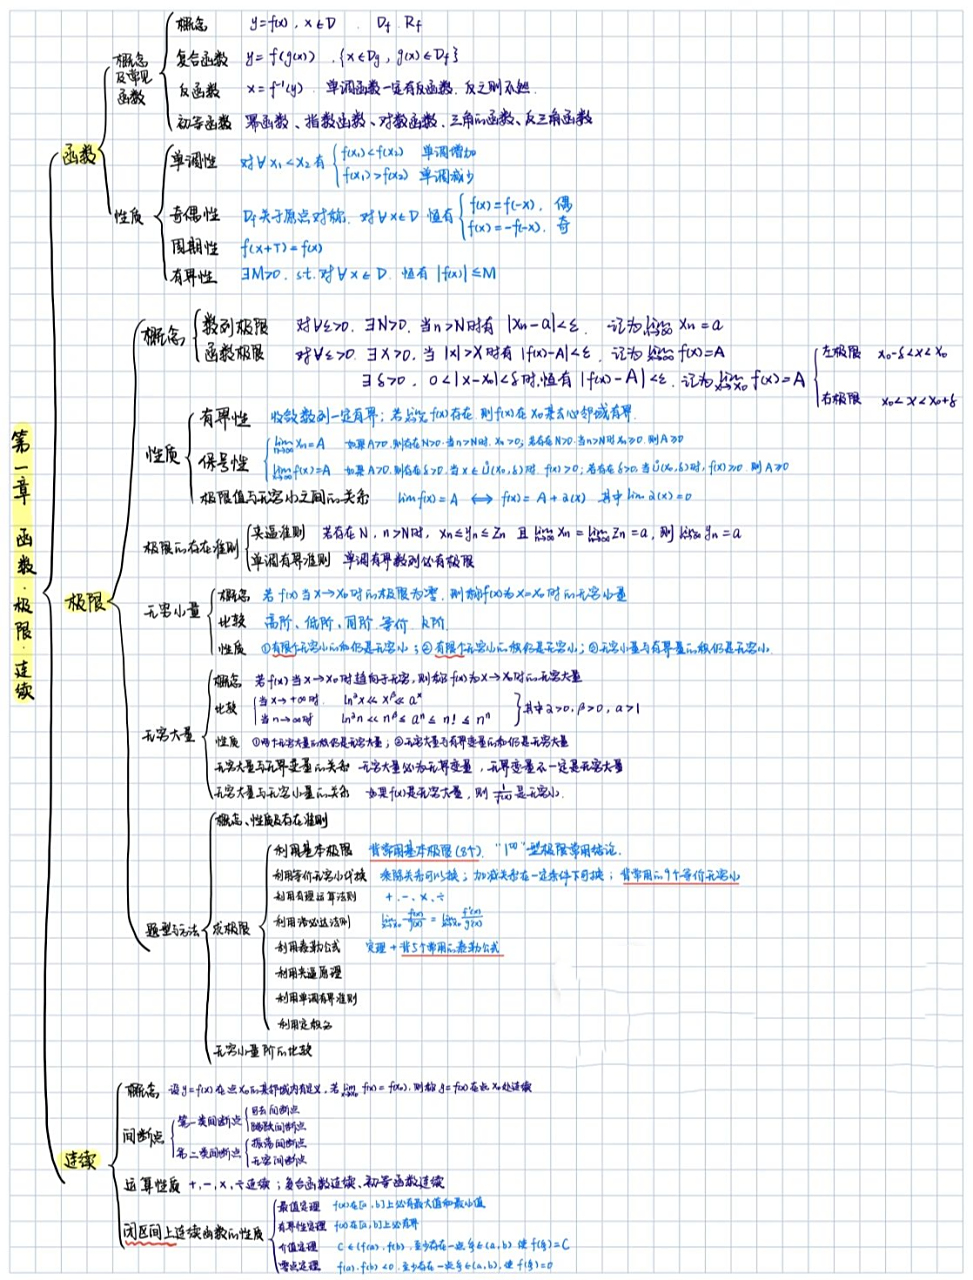 第一章 函数·极限·连续
函数
概念及常见函数
概念 y=f(x), x∈D. Df. Rf
复合函数 y=f(g(x)). {x∈Dg, g(x)∈Df}
反函数 x=f⁻¹(y). 单调函数一定有反函数, 反之则不然.
初等函数 幂函数、指数函数、对数函数、三角函数、反三角函数
性质
单调性 对∀x₁<x₂有 { f(x₁)<f(x₂) 单调增加
f(x₁)>f(x₂) 单调减少
奇偶性 Df关于原点对称, 对∀x∈D 恒有 { f(x)=f(-x), 偶
f(x)=-f(-x), 奇
周期性 f(x+T)=f(x)
有界性 ∃M>0, st.对∀x∈D 恒有 |f(x)|≤M
极限
概念
数列极限 对∀ε>0, ∃N>0, 当n>N时有 |Xn-a|<ε, 记为lim n→∞ Xn=a
函数极限 对∀ε>0 ∃X>0, 当|x|>X时有 |f(x)-A|<ε, 记为lim x→∞ f(x)=A
∃δ>0, 0<|x-x₀|<δ时,恒有 |f(x)-A|<ε, 记为lim x→x₀ f(x)=A
左极限 x₀-δ<x<x₀
右极限 x₀<x<x₀+δ
性质
有界性 收敛数列一定有界; 若lim f(x)存在 则f(x)在x₀某去心邻域有界.
保号性 lim n→∞ Xn=A 如果A>0, 则存在N>0 当n>N时, Xn>0; 若存在N>0 当n>N时 Xn≥0, 则A≥0
lim x→x₀ f(x)=A 如果A>0, 则存在δ>0, 当x∈Ů(x₀,δ)时 f(x)>0; 若存在δ>0, 当Ů(x₀,δ)时, f(x)≥0 则A≥0
极限值与无穷小之间的关系 lim f(x)=A ⟺ f(x)=A+α(x) 其中lim α(x)=0
极限的存在准则
夹逼准则 若存在N, n>N时, Xn≤Yn≤Zn 且 lim n→∞ Xn=lim n→∞ Zn=a, 则lim n→∞ Yn=a
单调有界准则 单调有界数列必有极限
无穷小量
概念 若f(x)当x→x₀时的极限为零, 则称f(x)为x→x₀时的无穷小量
比较 高阶、低阶、同阶、等价、k阶
性质 ①有限个无穷小的和仍是无穷小; ②有限个无穷小的积仍是无穷小; ③无穷小量与有界量的积仍是无穷小.
无穷大量
概念 若f(x)当x→x₀时趋向于无穷, 则称f(x)为x→x₀时的无穷大量
比较 当x→+∞时 lnᵅx≪xᵝ≪aˣ
当n→∞时 lnᵅn≪nᵝ≪aⁿ≪n!≪nⁿ } 其中α>0, β>0, a>1
性质 ①两个无穷大量的积仍是无穷大量; ②无穷大量与有界变量的和仍是无穷大量
无穷大量与无界变量的关系 无穷大量必为无界变量, 无界变量不一定是无穷大量
无穷大量与无穷小量的关系 如果f(x)是无穷大量, 则 1/f(x) 是无穷小.
题型与方法
概念、性质及存在准则
求极限
利用基本极限 背常用基本极限(8个), "1^∞"型极限常用结论.
利用等价无穷小代换 乘除关系可以换; 加减关系在一定条件下可换; 背常用的9个等价无穷小
利用有理运算法则 +、-、×、÷
利用洛必达法则 lim x→x₀ f(x)/g(x) = lim x→x₀ f'(x)/g'(x)
利用泰勒公式 定理+背5个常用的泰勒公式
利用夹逼原理
利用单调有界准则
利用定积分
无穷小量阶的比较
连续
概念 设y=f(x)在点x₀的某邻域内有定义, 若lim x→x₀ f(x)=f(x₀), 则称y=f(x)在点x₀处连续
间断点
第一类间断点 { 可去间断点
跳跃间断点
第二类间断点 { 振荡间断点
无穷间断点
运算性质 +,-,×,÷连续; 复合函数连续、初等函数连续
闭区间上连续函数的性质
最值定理 f(x)在[a,b]上必有最大值和最小值
有界性定理 f(x)在[a,b]上必有界
介值定理 C∈(f(a),f(b), 至少存在一点ξ∈(a,b) 使f(ξ)=C
零点定理 f(a)·f(b)<0 至少存在一点ξ∈(a,b), 使f(ξ)=0